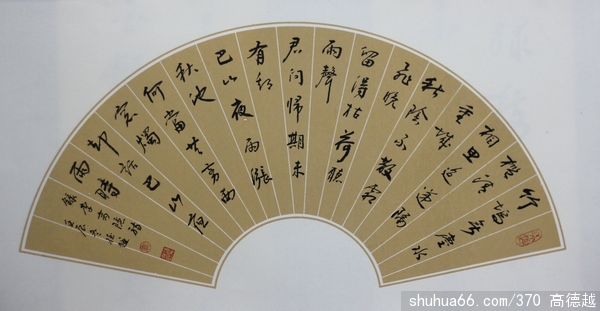 竹塢無塵水
檻清
相思迢遞隔
重城
秋陰不散霜
飛晚
留得枯荷聽
雨聲
君問歸期未
有期
巴山夜雨漲
秋池
何當共剪西
窗燭
却話巴山夜
雨時
錄李商隱詩
壬辰冬德越
shuhua66.com/370 高德越